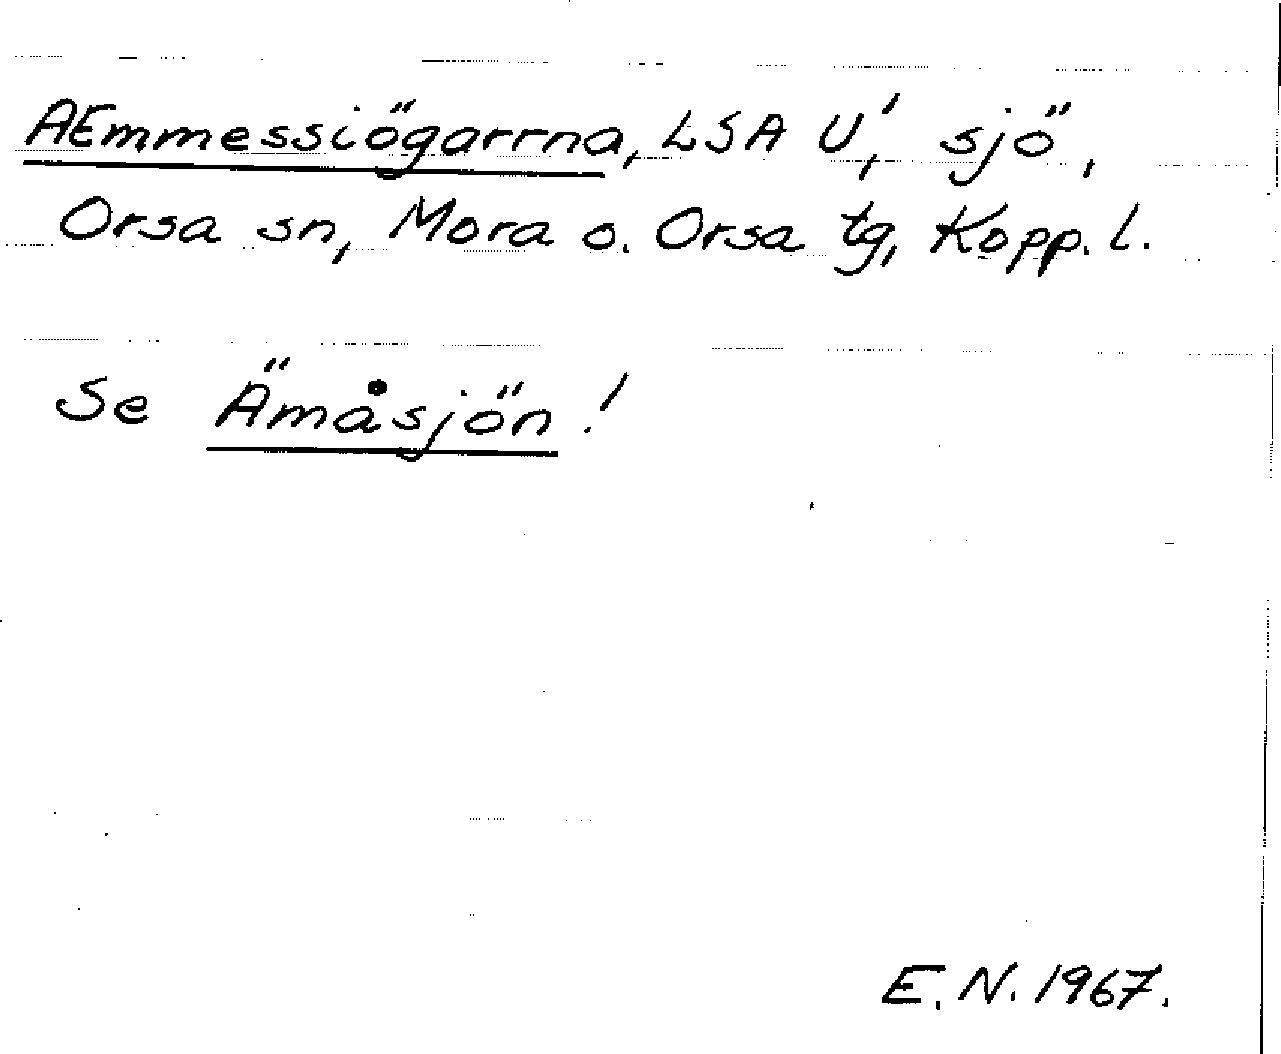 AEmmessiögarrna, LSA U', sjö,
Orsa sn, Mora o. Orsa tg, Kopp. l.
Se Ämåsjön!
E.N. 1967.